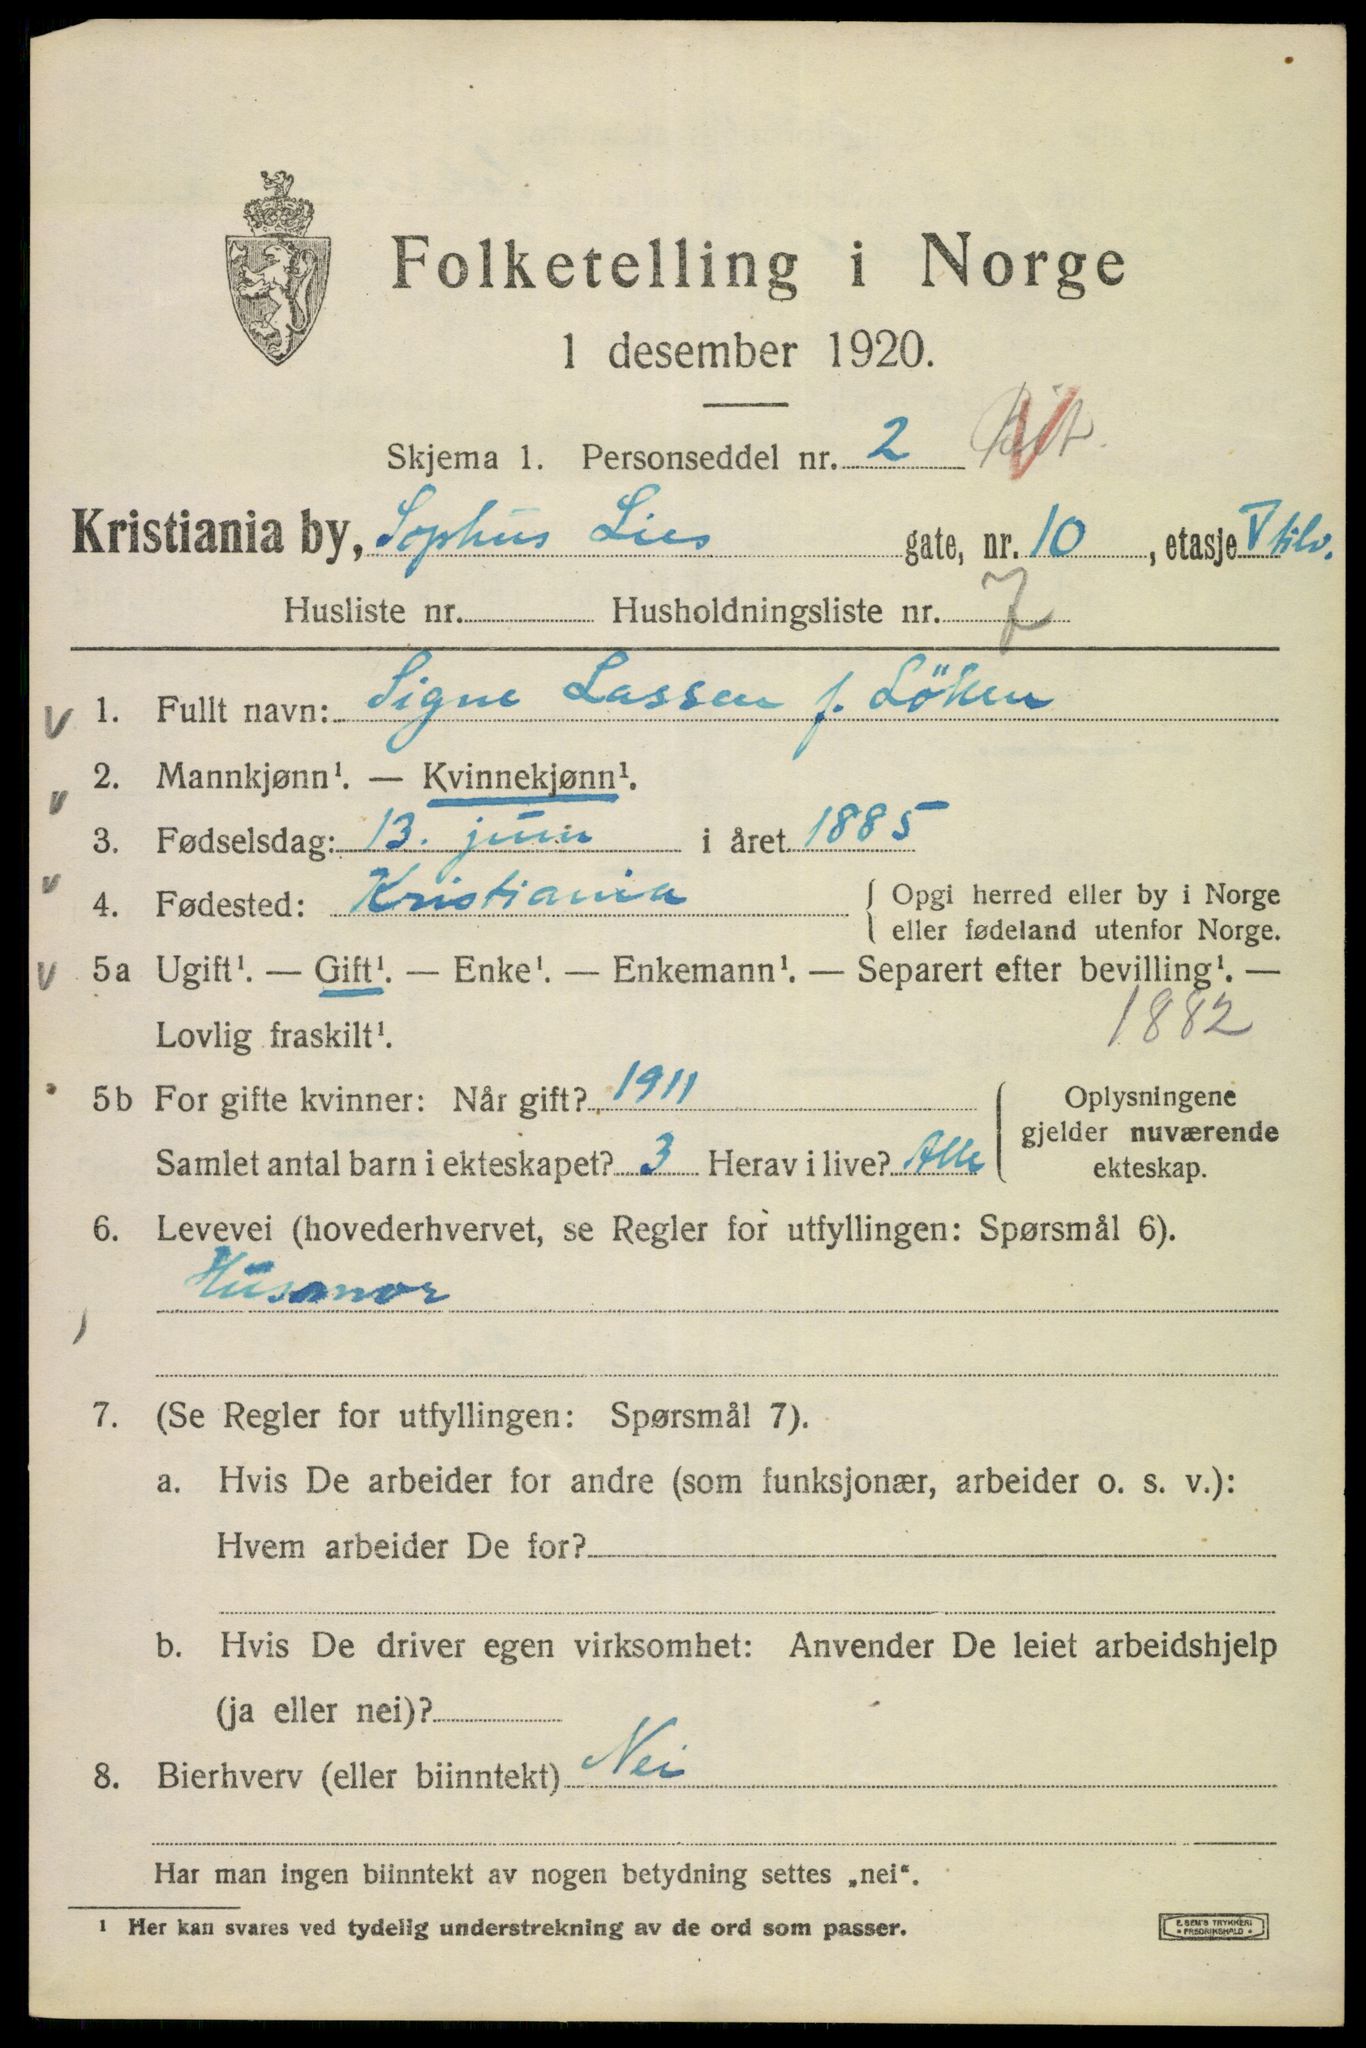 Folketelling i Norge
1 desember 1920.
Skjema 1. Personseddel nr. 2
Kristiania by, Sophus Lies gate, nr. 10, etasje V tilv.
Husliste nr. Husholdningsliste nr. 7
V 1. Fullt navn: Signe Lassen f. Löken
2. Mannkjønn¹. — Kvinnekjønn¹.
v 3. Fødselsdag: 13. juni i året 1885
v 4. Fødested: Kristiania { Opgi herred eller by i Norge
eller fødeland utenfor Norge.
v 5a Ugift¹. — Gift¹. — Enke¹. — Enkemann¹. — Separert efter bevilling¹. —
Lovlig fraskilt¹. 1882
5b For gifte kvinner: Når gift? 1911
Samlet antal barn i ekteskapet? 3 Herav i live? Alle
{ Oplysningene
gjelder nuværende
ekteskap.
6. Levevei (hovederhvervet, se Regler for utfyllingen: Spørsmål 6).
Husmor
7. (Se Regler for utfyllingen: Spørsmål 7).
a. Hvis De arbeider for andre (som funksjonær, arbeider o. s. v.):
Hvem arbeider De for?
b. Hvis De driver egen virksomhet: Anvender De leiet arbeidshjelp
(ja eller nei)?
8. Bierhverv (eller biinntekt) Nei
Har man ingen biinntekt av nogen betydning settes „nei“.
¹ Her kan svares ved tydelig understrekning av de ord som passer.
E. SEM'S TRYKKERI
FREDRIKSHALD